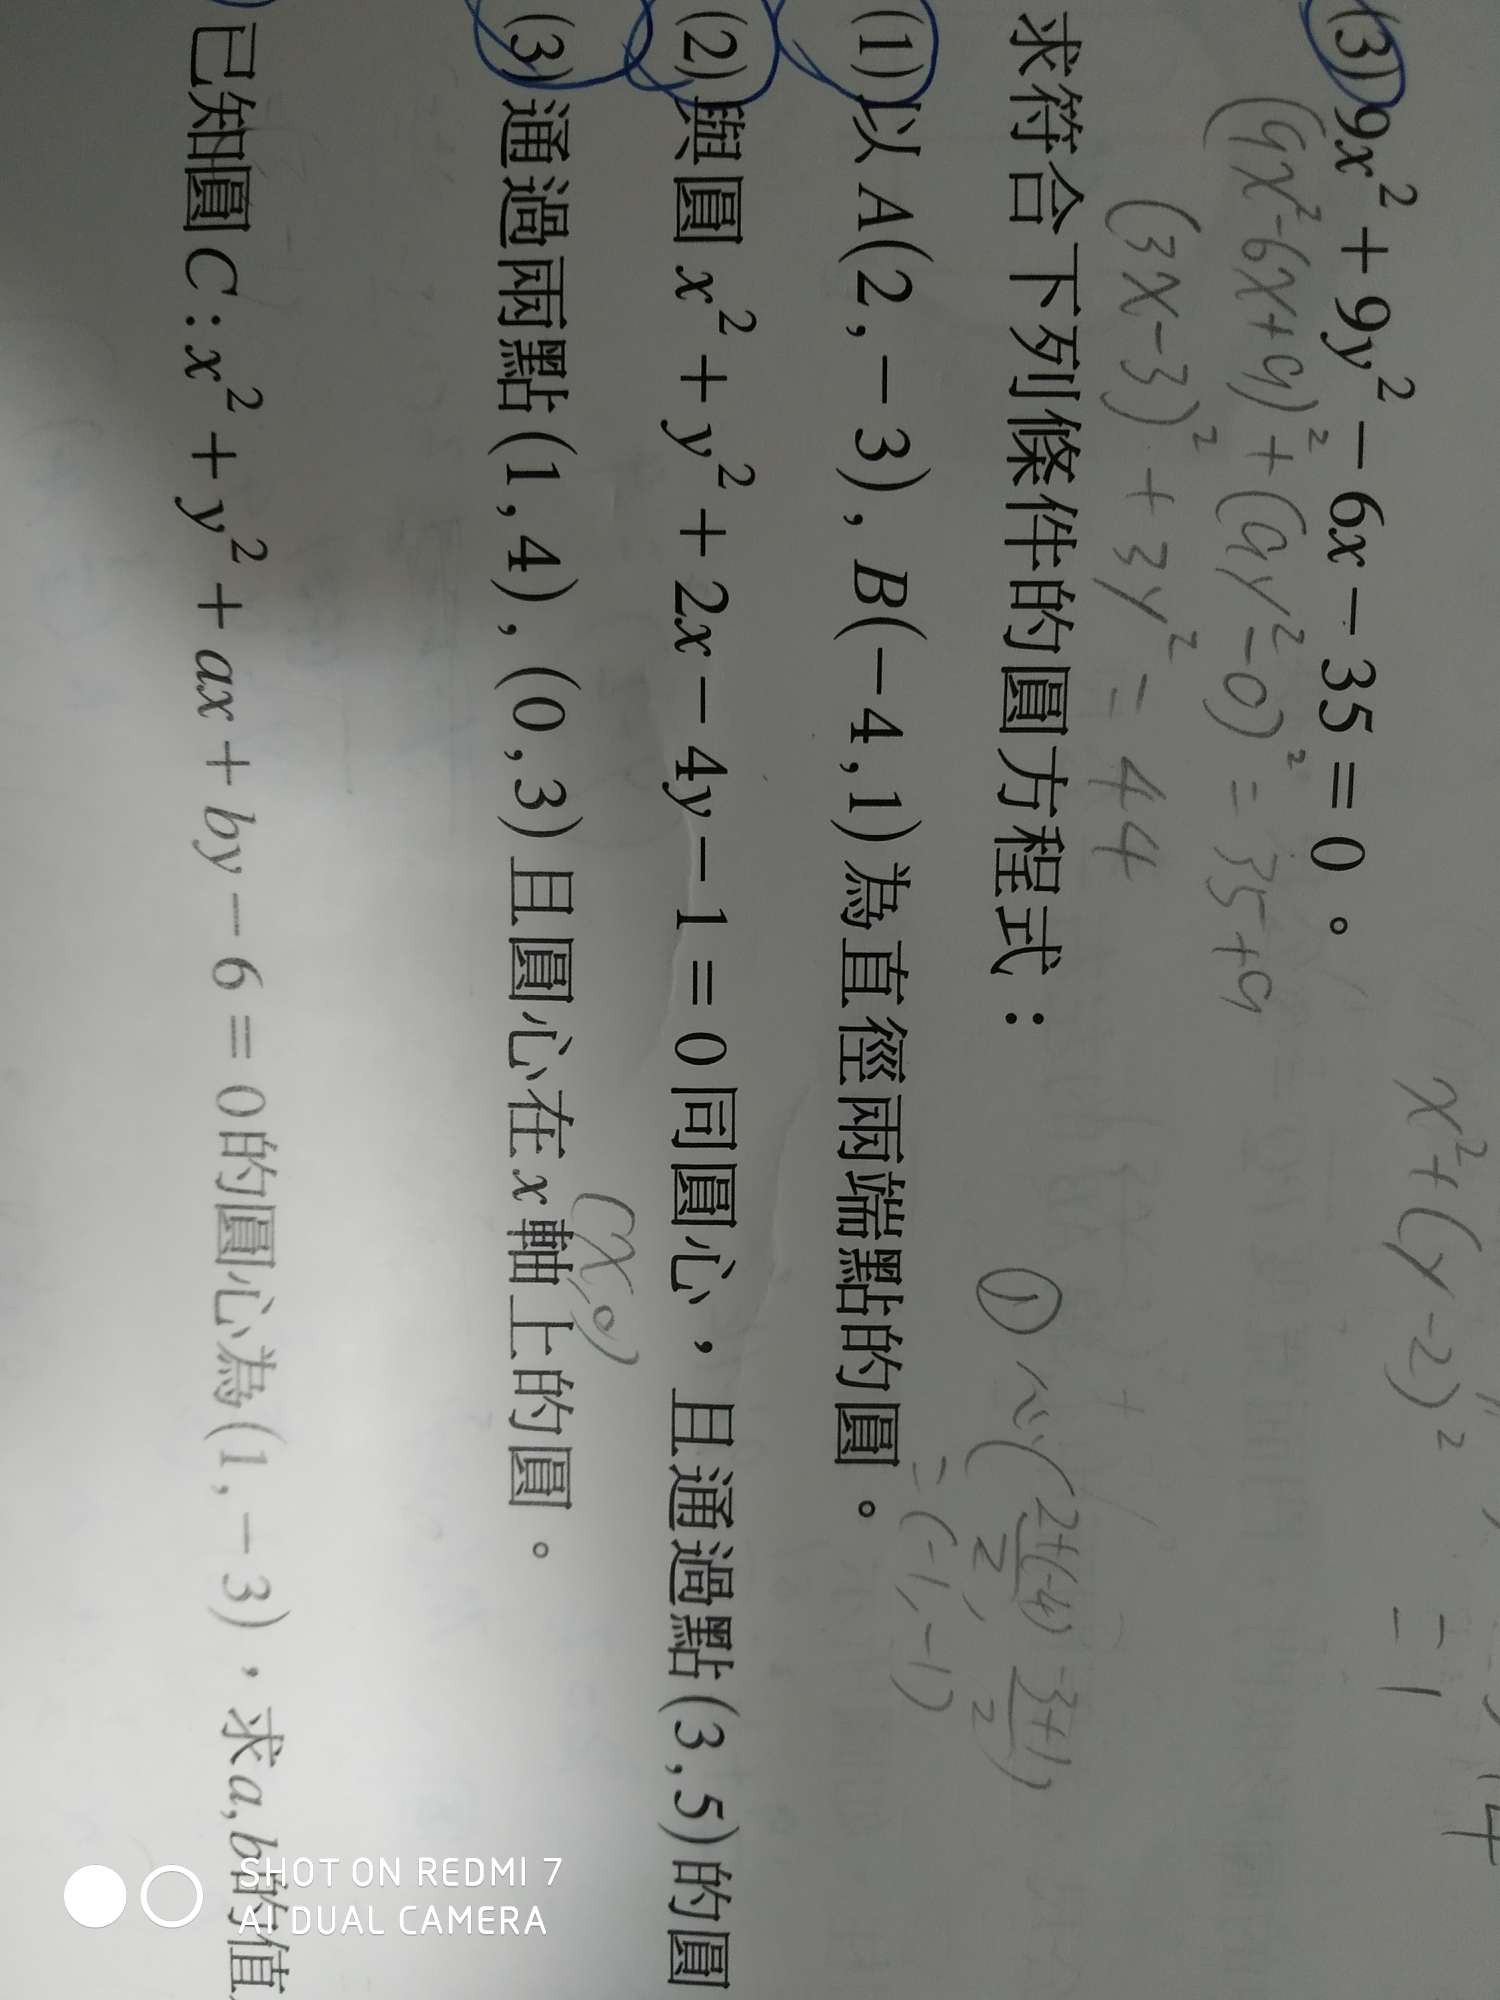 x² + (y-2)² = 1
(3) 9x² + 9y² - 6x - 35 = 0 。
(9x²-6x+9)² + (9y²-0)² = 35+9
(3x-3)² + 3y² = 44
求符合下列條件的圓方程式：
① 心(2+(-4)/2, -3+1/2)
= (-1, -1)
(1) 以 A(2, -3), B(-4, 1) 為直徑兩端點的圓。
(2) 與圓 x² + y² + 2x - 4y - 1 = 0 同圓心，且通過點(3, 5)的圓
(x, 0)
(3) 通過兩點(1, 4), (0, 3)且圓心在 x 軸上的圓。
已知圓 C : x² + y² + ax + by - 6 = 0 的圓心為(1, -3)，求a, b的值
SHOT ON REDMI 7
AI DUAL CAMERA